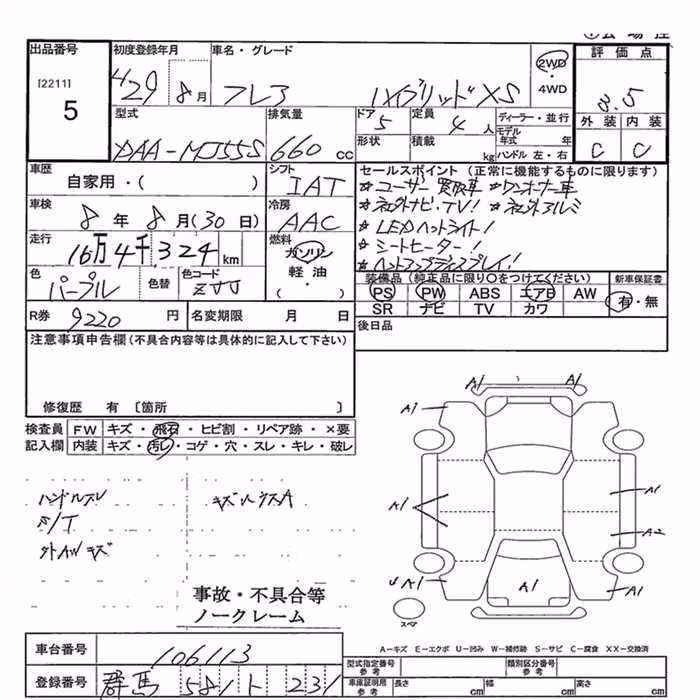 出品番号 初度登録年月 車名・グレード 評価点
[2211] 5 H29 8月 フレア ハイブリッドXS 2WD・4WD 3.5
型式 排気量 ドア 定員 ディーラー・並行 外装 内装
DAA-MJ55S 660 CC 5 4人 モデル年式 年 C C
形状 積載 kg ハンドル 左・右
車歴 シフト セールスポイント (正常に機能するものに限ります)
自家用・( ) IAT ☆ユーザー買取車 ☆ワンオーナー車
車検 冷房 ☆社外ナビ・TV! ☆社外アルミ
8年8月(30日) AAC ☆LEDヘッドライト!
走行 燃料 ☆シートヒーター!
16万4千324km ガソリン ☆ヘッドアップディスプレイ!
色 色替 色コード 軽油 装備品 (純正品に限り○をつけてください) 新車保証書
パープル ZJJ ・( ) PS PW ABS エアB AW 有・無
SR ナビ TV カワ
R券 9220円 名変期限 月 日 後日品
注意事項申告欄(不具合内容等は具体的に記入して下さい)
修復歴 有 〔箇所 〕
検査員 FW キズ・飛石・ヒビ割・リペア跡・×要
記入欄 内装 キズ・汚レ・コゲ・穴・スレ・キレ・破レ
ハンドルスレ キズハウスA
S/T
外AWキズ
A1 A1
A1
A1 A1
A2
A1 A1 A1
スペア
事故・不具合等
ノークレーム
A-キズ E-エクボ U-凹み W-補修跡 S-サビ C-腐食 XX-交換済
車台番号 106113 型式指定番号 参考 類別区分番号 参考
登録番号 群馬 581 ト 231 車庫証明用 参考 長さ cm 幅 cm 高さ cm